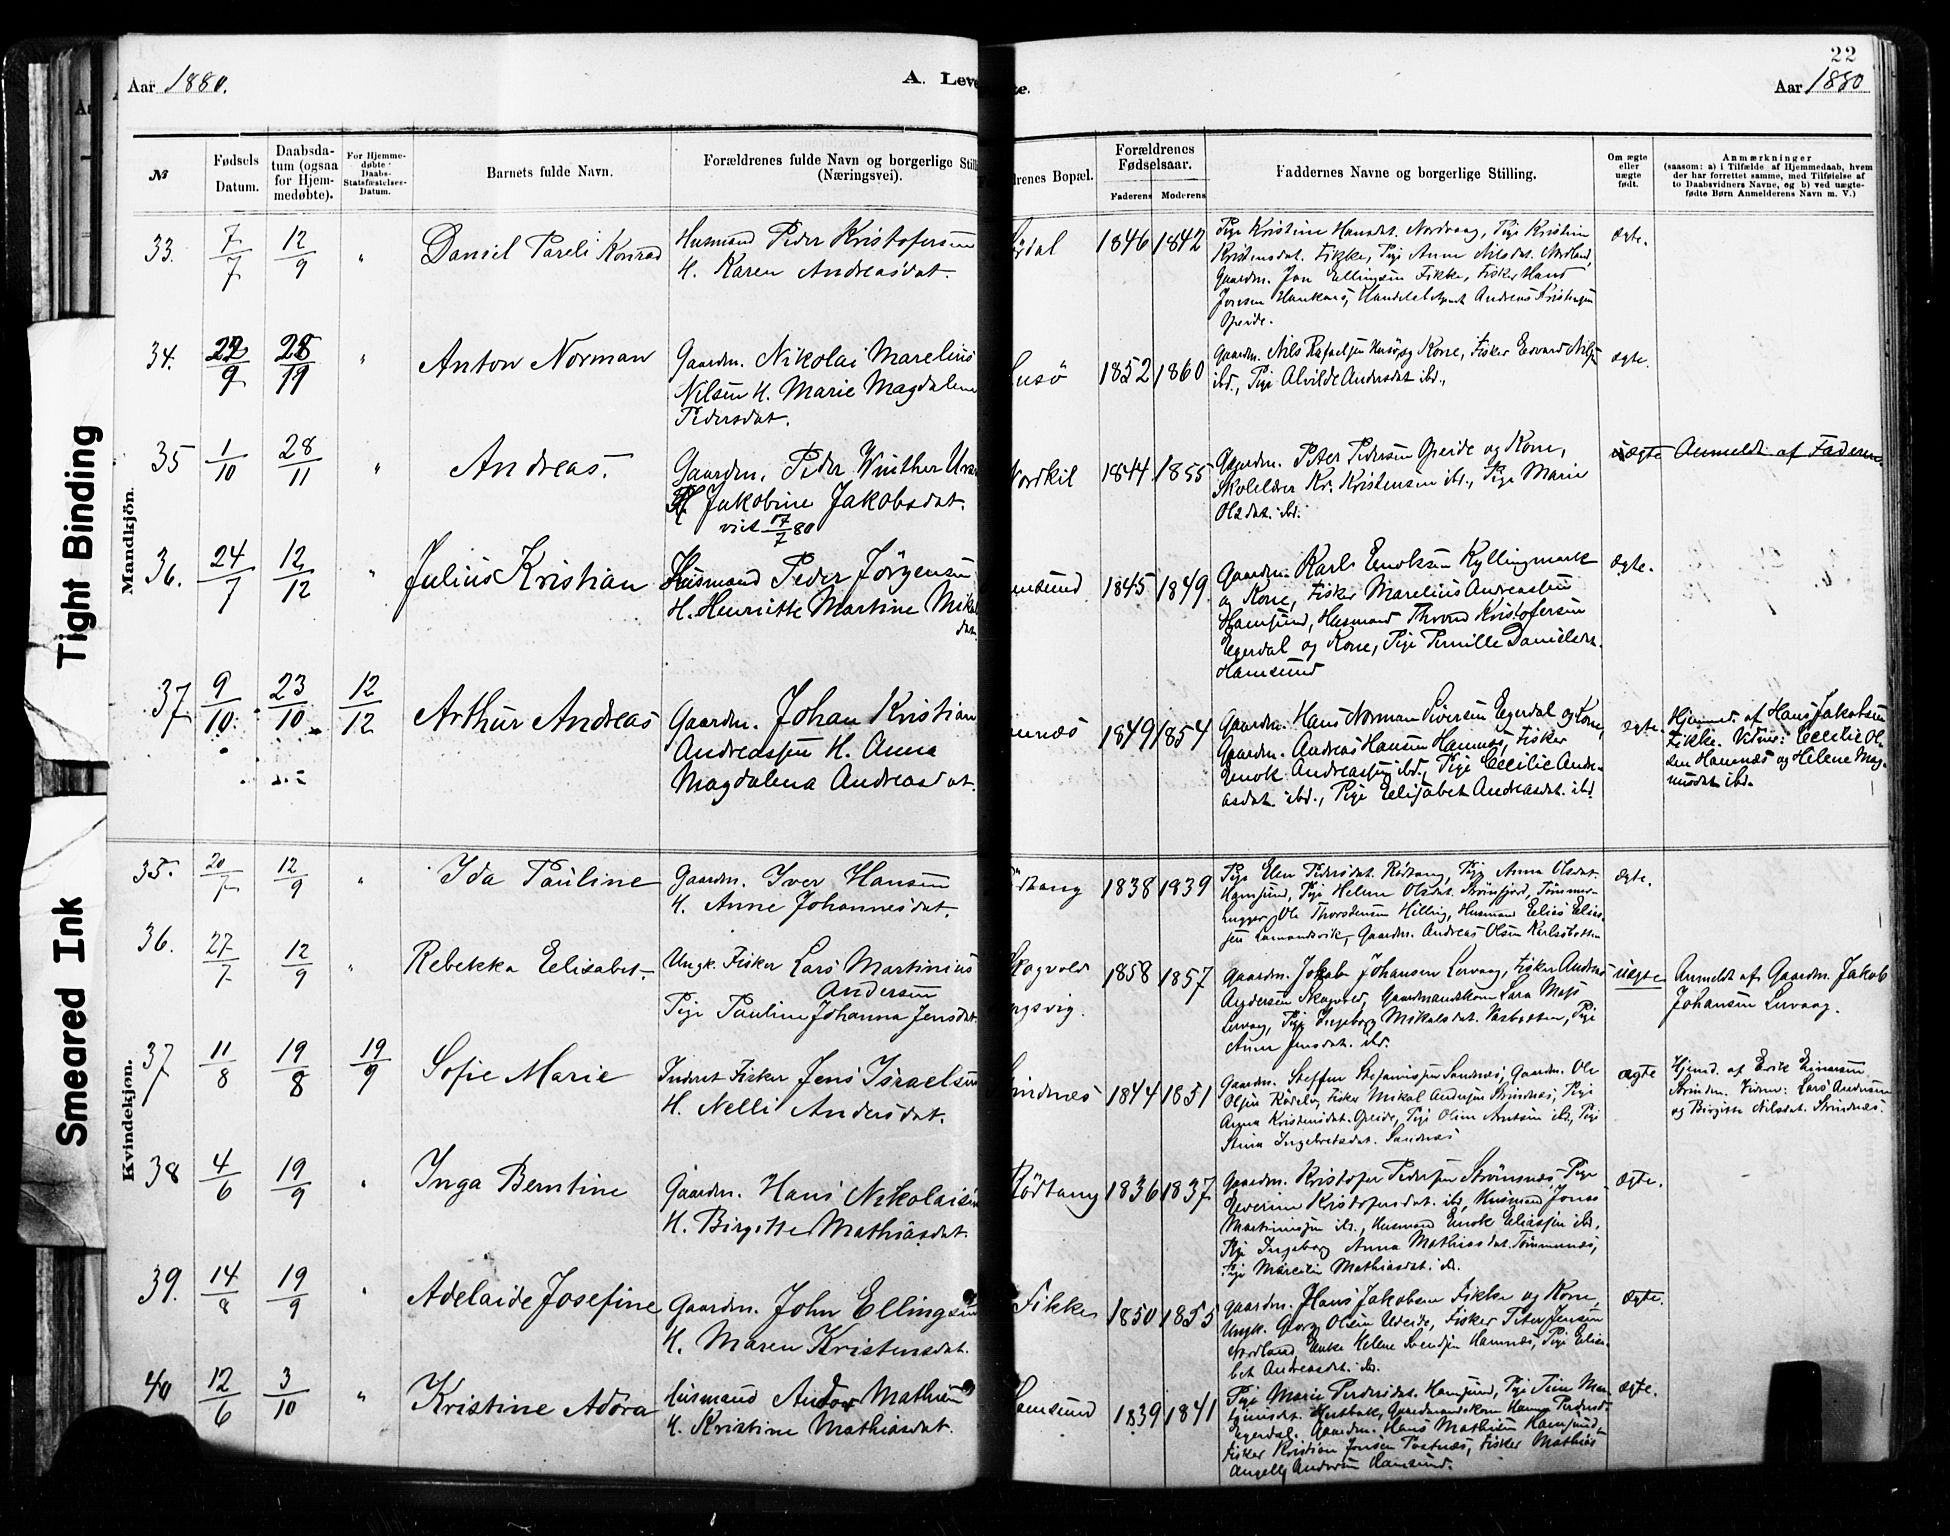 22
Aar 1880.
A. Leve
ke.
Aar 1880
№
Fødsels Datum.
Daabsdatum (ogsaa for Hjemmedøbte).
For Hjemmedøbte Daabs-Statsfæstelses-Datum.
Barnets fulde Navn.
Forældrenes fulde Navn og borgerlige Stilli (Næringsvei).
drenes Bopæl.
Forældrenes Fødselsaar.
Faderens
Moderens
Faddernes Navne og borgerlige Stilling.
Om ægte eller uægte født.
Anmærkninger
(saasom: a) i Tilfælde af Hjemmedaab, hvem
der har forrettet samme, med Tilføielse af
to Daabsvidners Navne, og b) ved uægte-
fødte Børn Anmelderens Navn m. V.)
Tight Binding
Smeared Ink
Mandkjön.
33. 7/7 12/9 " Daniel Pareli Konrad
Husmand Peder Kristofersen
H. Karen Andreasdat.
1846 1842
Pige Kristine Hansdat. Nordvaag, Pige Kristine
Kristensdat. Fikke, Pige Anne Nilsdat. Nordland,
Gaardm. Jon Ellingsen Fikke, Fisker Hans
ægte.
34. 28/11 " Anton Norman
Gaardm. Nikolai Marelius
Nilsen H. Marie Magdalene
Pedersdat.
usö 1852 1860
Gaardm. Nils Rafaelsen Husö og Kone, Fisker Edvard Nilsen
ibd., Pige Alvilde Andersdat ibd.,
ægte.
35 1/10 28/11 " Andreas.
Gaardm. Peder Winther
H. Jakobine Jakobsdat.
viet 17/7 80
Nordkil 1844 1855
Gaardm. Peter Pedersen Opeide og Kone,
Skolelærer Kr. Kristensen ibd., Pige Marie
Olsdat. ibd.
uægte Anmeldt af Faderen
36. 24/7 12/12 " Julius Kristian
Husmand Peder Jörgensen
H. Henriette Martine Mikal
dat.
msund 1845 1849.
Gaardm. Karl Enoksen Kyllingmark
og Kone, Fisker Marelius Andreassen
Hamsund, Husmand Thrond Kristofersen
Egerdal og Kone, Pige Pernille Danielsdt.
Hamsund
ægte.
37 9/10 23/10 12/12 Arthur Andreas
Gaardm. Johan Kristian
Andreassen H. Anna
Magdalena Andreasdat.
nnæs 1849 1854
Gaardm. Hans Norman Siversen Egerdal og Kone,
Gaardm. Andreas Hansen Hamnæs, Fisker
Enok Andreassen ibd., Pige Cecilie Andre-
asdat. ibd., Pige Elisabet Andreasdat. ibd
ægte. Hjemmed. af Hans Jakobsen
Fikke. Vidner: Cecilie Ol-
sen Hamnæs og Helene Mag-
nusdat ibd.
Kvindekjøn.
35. 20/7 12/9 " Ida Pauline
Gaardm. Iver Hansen
H. Anne Johannesdat.
ödtang 1838 1839
Pige Elen Pedersdat. Rödtang, Pige Anne Olsdat.
Hamsund, Pige Helene Olsdat. Strönfjord, Tömmer-
hugger Ole Thorstensen Hilling, Husmand Elias Elias-
sen Lamandsvik, Gaardm. Andreas Olsen Karlsbotten
ægte.
36. 27/7 12/9 " Rebekka Elisabet
Ungk. Fisker Lars Martinius
Andersen
Pige Pauline Johanna Jensdat.
Skogvold
gsvig. 1858 1857
Gaardm. Jakob Johansen Lervaag, Fisker Andreas
Andersen Skogvold, Gaardmandskone Sara
Lervaag, Pige Ingeborg Mikalsdat. Varbotten, Pige
Anne Jensdat. ibd.
uægte Anmeldt af Gaardm. Jakob
Johansen Lervaag.
37 11/8 19/8 19/9 Sofie Marie
Inderst Fisker Jens Israelsen
H. Nelli Andersdat.
indnæs 1844 1851
Gaardm. Steffen Stefanussen Sandnæs, Gaardm. Ole
Olsen Rödelv, Fisker Mikal Andersen Strindnæs, Pige
Anna Kristensdat. Opeide, Pige Oline Arntsen ibd., Pige
Stina Ingebretsdat. Sandnæs
ægte Hjemd. af Erik Einarsen
Strinden. Vidner: Lars Andersen
og Birgitte Nilsdat. Strindnæs.
38 4/6 19/9 " Inga Berntine
Gaardm. Hans Nikolaisen
H. Birgitte Mathiasdat.
Rödtang 1836 1837
Gaardm. Kristofer Pedersen Strömsnæs, Pige
Severine Kristofersdat. ibd, Husmand Jonas
Martinussen ibd., Husmand Enok Eliassen ibd.,
Pige Ingeborg Anna Mathiasdat. Tömmernæs,
Pige Marcelie Mathiasdat. ibd.
ægte.
39. 14/8 19/9 " Adelaide Josefine
Gaardm. John Ellingsen
H. Maren Kristensdat.
Fikke 1850 1855
Gaardm. Hans Jakobsen Fikke og Kone,
Ungk. Georg Olsen Uteide, Fisker Peter Jensen
Nordland, Enke Helene Svendsen Hamnæs, Pige Elisa-
bet Andreasdt. ibd.
ægte.
40 12/6 3/10 " Kristine Adora
Husmand Andor Mathisen
H. Kristine Mathiasdat.
amsund 1839 1841
Pige Marie Pedersdat. Hamsund, Pige
Gaardmandskone Hanna
Egerdal, Gaardm. Hans Mathisen Hamsund,
Fisker Kristian Jensen Fisker Mathias
Angell Andersen Hamsund.
ægte.